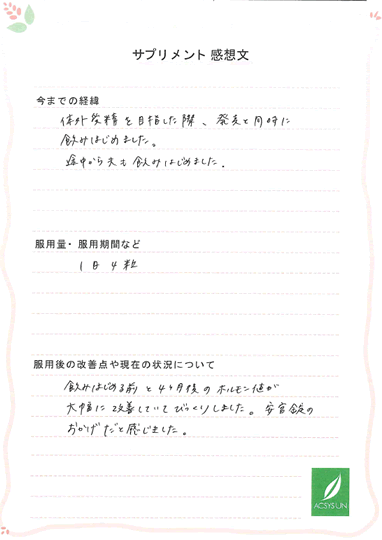 サプリメント 感想文
今までの経緯
体外受精を目指した際、発売と同時に
飲みはじめました。
途中から夫も飲みはじめました。
服用量・服用期間など
1日 4粒
服用後の改善点や現在の状況について
飲みはじめる前と4ヶ月後のホルモン値が
大幅に改善していてびっくりしました。
おかげだと感じました。
ACSYSUN